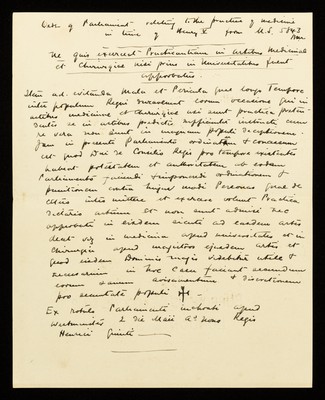 Note of Parliament relating to the practice of medicine
in time of Henry V from M.S. 5843
Ne quis exerceat Practisantiam in Artibus Medicinal
et Chirurgiae nisi prius in Universitatibus fuerit
approbatus.
Item ad evitanda Mala et Pericula quae longo Tempore
inter populum Regni duraverunt eorum occasione qui in
artibus medicinae et Chirurgiae usi sunt practica
ac in artibus praedictis sufficienter instructi cum
re vera non sunt in magnam populi deceptionem
in praesenti Parliamento ordinatum & concessum
est quod D'ni de Concilio Regis pro tempore existentes
habeant potestatem et auctoritatem ab eodem
Parliamento faciendi & imponendi ordinationem &
punitionem contra hujus modi Personas quae de
cetero inter mittere et exercere volunt Practica
dictarum artium et non sunt admissi nec
approbati in eisdem sicuti ad easdem artes
decet viz in medicina apud universitates et in
Chirurgia apud magistros ejusdem artis et
quod eisdem Dominis magis videbitur utile &
necessarium in hoc Casu faciant secundum
eorum sanum avisamentum & discretionem
pro securitate populi
Ex rotulo Parliamenti inchoati apud
Westminster 2 die Maii Ao nono Regis
Henrici Quinti